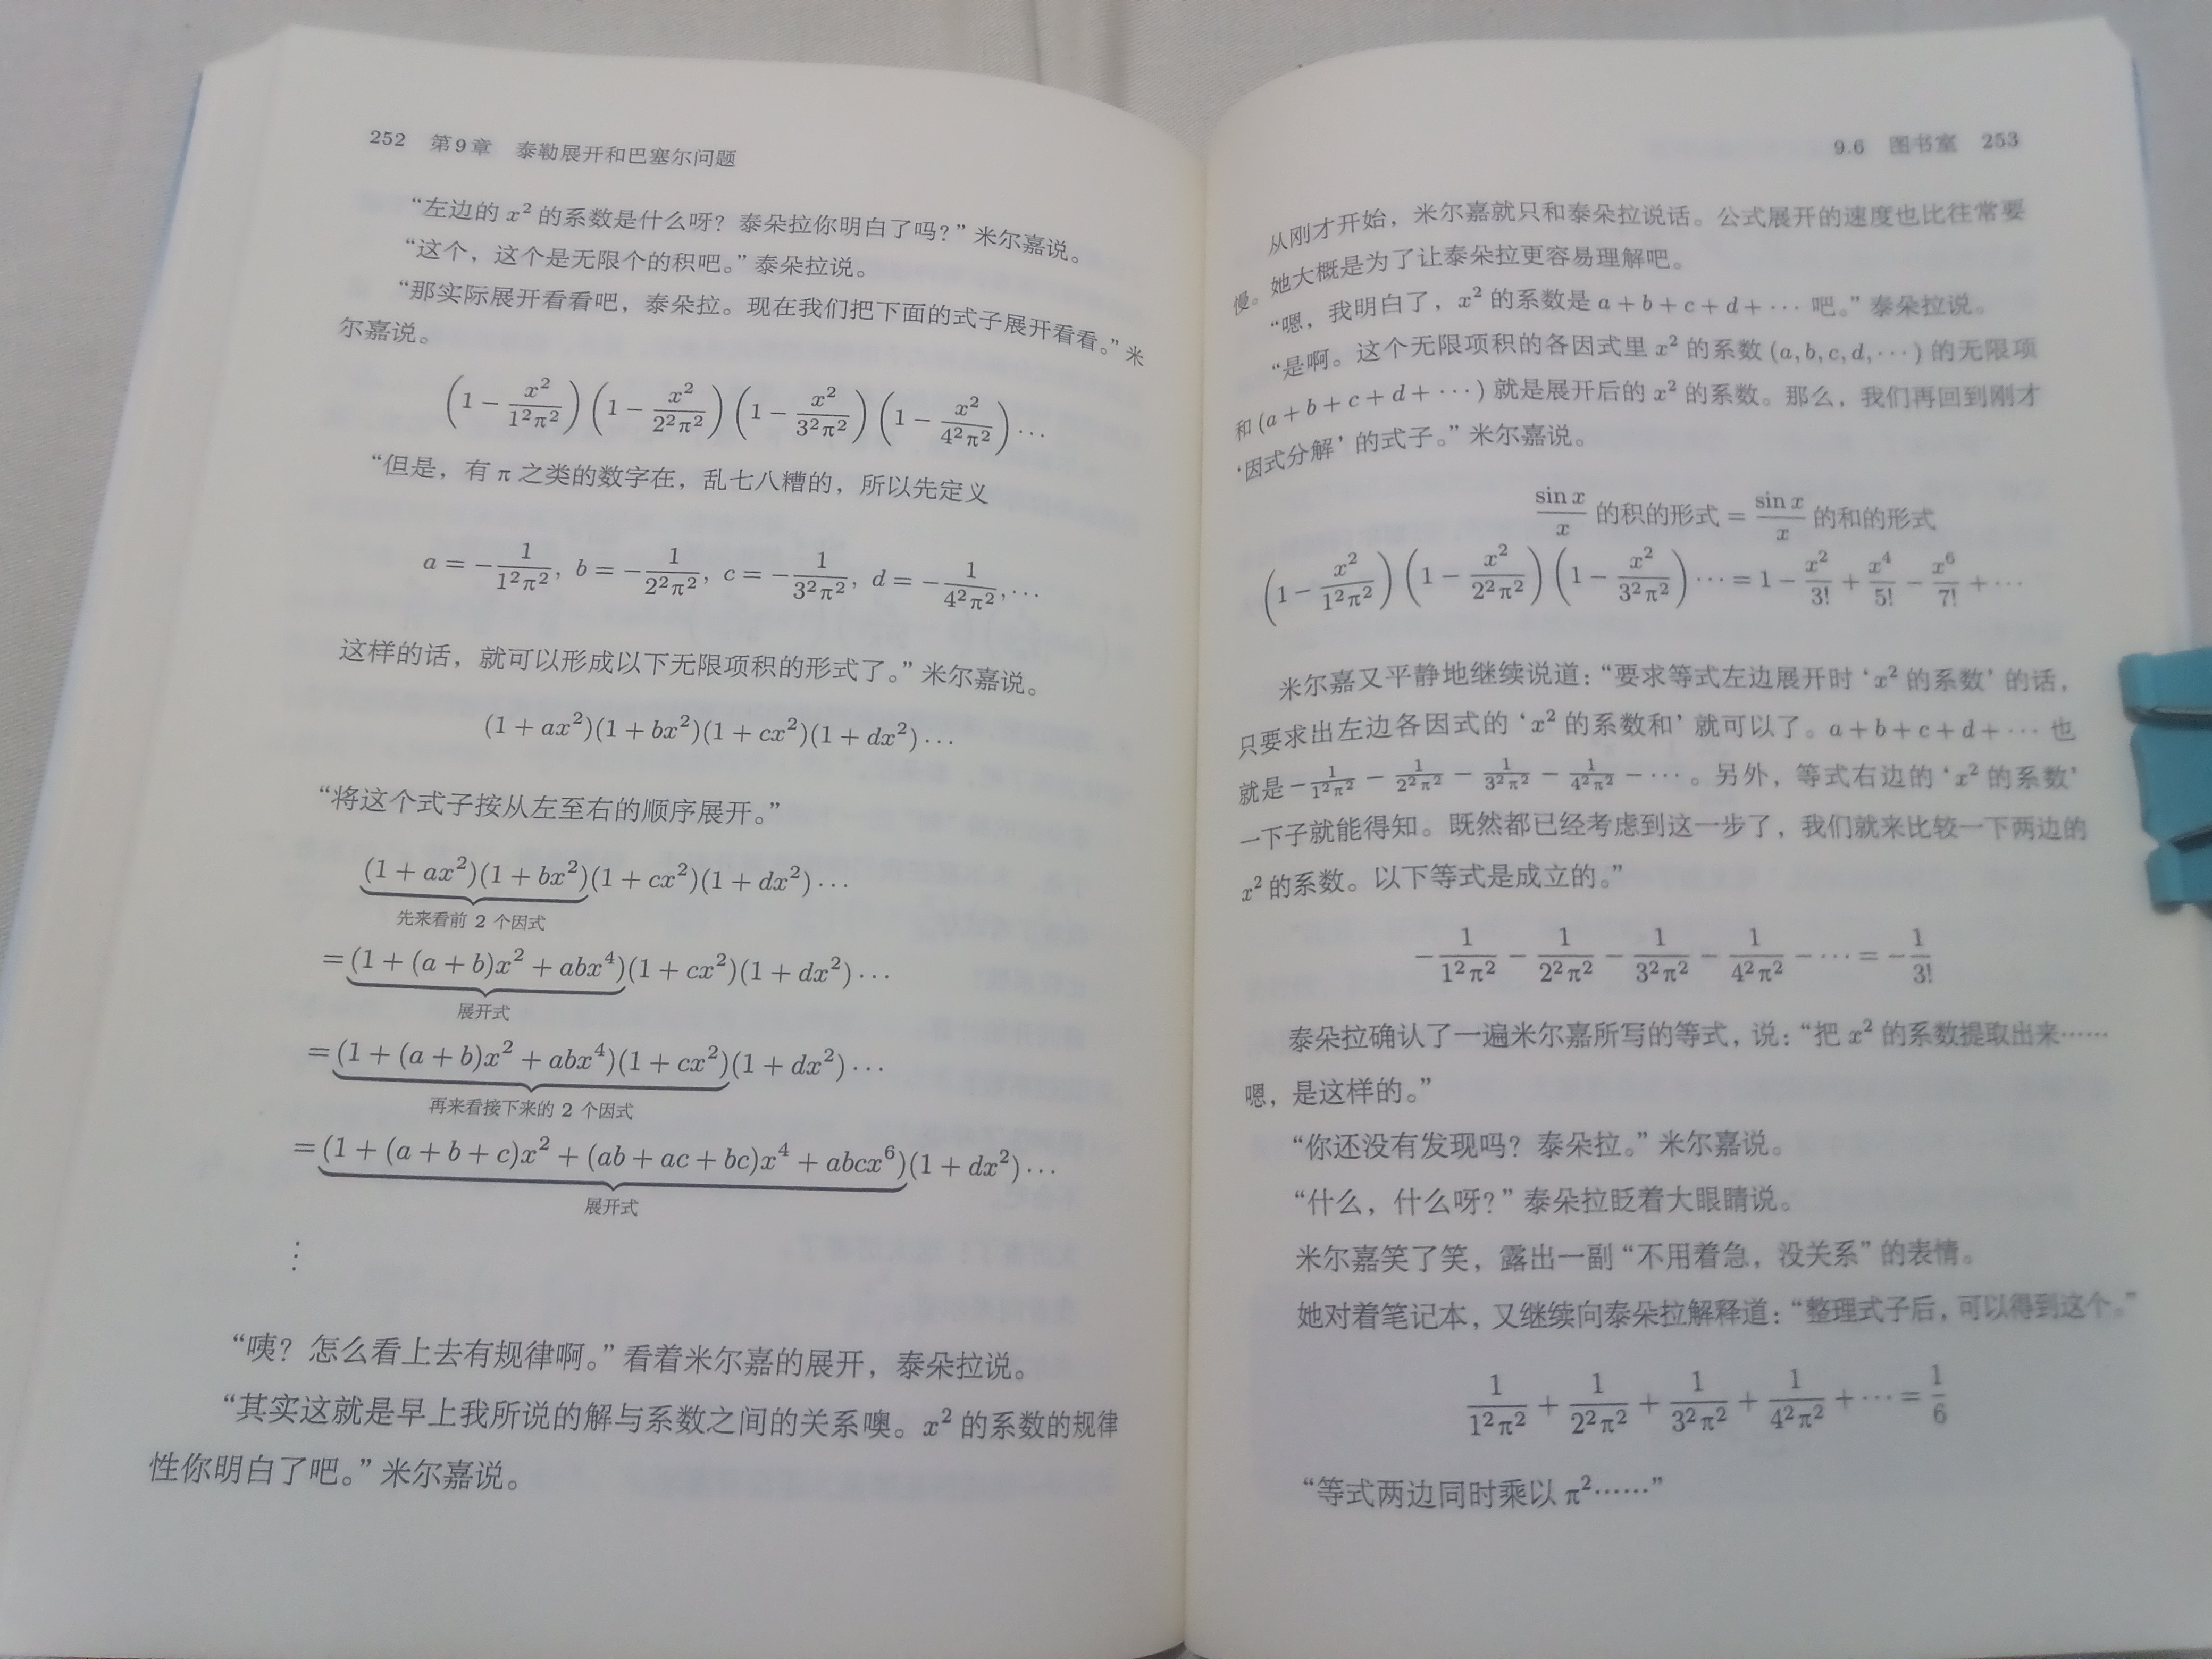 252 第9章 泰勒展开和巴塞尔问题
“左边的 x² 的系数是什么呀？泰朵拉你明白了吗？”米尔嘉说。
“这个，这个是无限个的积吧。”泰朵拉说。
“那实际展开看看吧，泰朵拉。现在我们把下面的式子展开看看。”米
尔嘉说。
(1 − x²/1²π²)(1 − x²/2²π²)(1 − x²/3²π²)(1 − x²/4²π²)···
“但是，有 π 之类的数字在，乱七八糟的，所以先定义
a = −1/1²π², b = −1/2²π², c = −1/3²π², d = −1/4²π², ···
这样的话，就可以形成以下无限项积的形式了。”米尔嘉说。
(1 + ax²)(1 + bx²)(1 + cx²)(1 + dx²)···
“将这个式子按从左至右的顺序展开。”
(1 + ax²)(1 + bx²)(1 + cx²)(1 + dx²)···
先来看前 2 个因式
= (1 + (a + b)x² + abx⁴)(1 + cx²)(1 + dx²)···
展开式
= (1 + (a + b)x² + abx⁴)(1 + cx²)(1 + dx²)···
再来看接下来的 2 个因式
= (1 + (a + b + c)x² + (ab + ac + bc)x⁴ + abcx⁶)(1 + dx²)···
展开式
⋮
“咦？怎么看上去有规律啊。”看着米尔嘉的展开，泰朵拉说。
“其实这就是早上我所说的解与系数之间的关系噢。x² 的系数的规律
性你明白了吧。”米尔嘉说。
9.6 图书室 253
从刚才开始，米尔嘉就只和泰朵拉说话。公式展开的速度也比往常要
慢。她大概是为了让泰朵拉更容易理解吧。
“嗯，我明白了，x² 的系数是 a + b + c + d + ··· 吧。”泰朵拉说。
“是啊。这个无限项积的各因式里 x² 的系数 (a, b, c, d, ···) 的无限项
和 (a + b + c + d + ···) 就是展开后的 x² 的系数。那么，我们再回到刚才
‘因式分解’的式子。”米尔嘉说。
sin x/x 的积的形式 = sin x/x 的和的形式
(1 − x²/1²π²)(1 − x²/2²π²)(1 − x²/3²π²)··· = 1 − x²/3! + x⁴/5! − x⁶/7! + ···
米尔嘉又平静地继续说道：“要求等式左边展开时‘x² 的系数’的话，
只要求出左边各因式的‘x² 的系数和’就可以了。a + b + c + d + ··· 也
就是 −1/1²π² − 1/2²π² − 1/3²π² − 1/4²π² − ···。另外，等式右边的‘x² 的系数’
一下子就能得知。既然都已经考虑到这一步了，我们就来比较一下两边的
x² 的系数。以下等式是成立的。”
−1/1²π² − 1/2²π² − 1/3²π² − 1/4²π² − ··· = −1/3!
泰朵拉确认了一遍米尔嘉所写的等式，说：“把 x² 的系数提取出来……
嗯，是这样的。”
“你还没有发现吗？泰朵拉。”米尔嘉说。
“什么，什么呀？”泰朵拉眨着大眼睛说。
米尔嘉笑了笑，露出一副“不用着急，没关系”的表情。
她对着笔记本，又继续向泰朵拉解释道：“整理式子后，可以得到这个。”
1/1²π² + 1/2²π² + 1/3²π² + 1/4²π² + ··· = 1/6
“等式两边同时乘以 π²……”